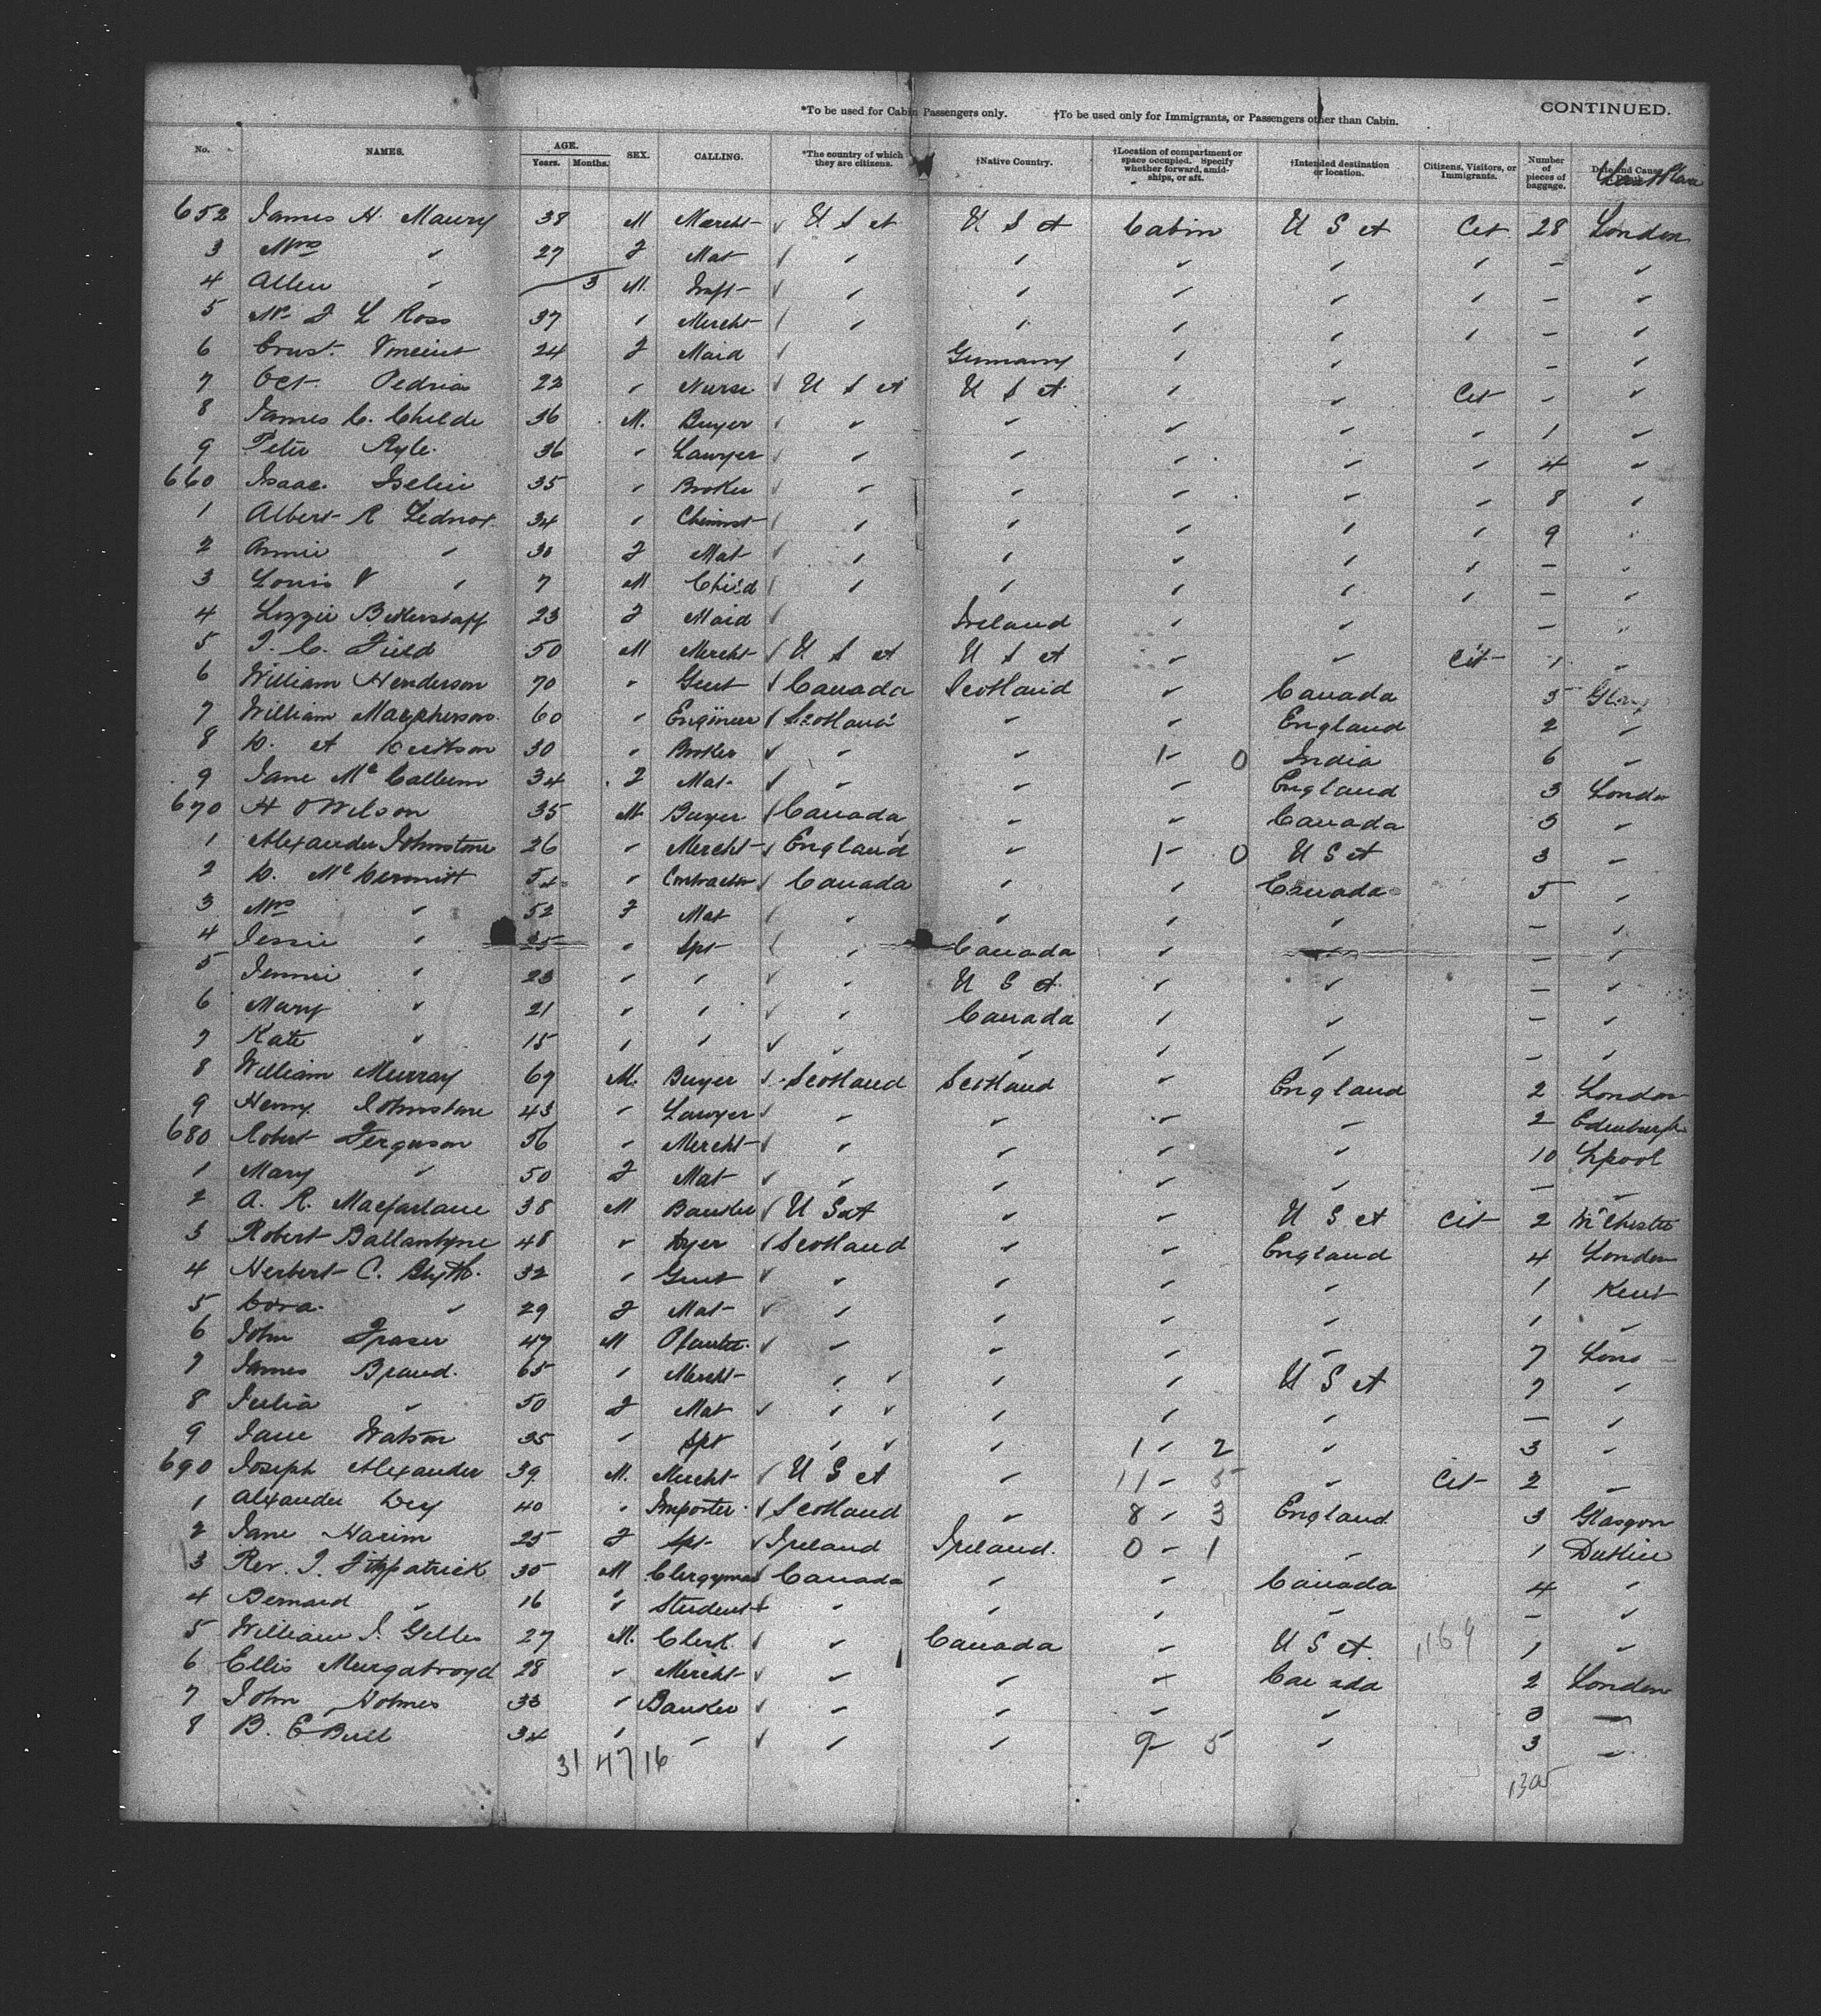 CONTINUED.
*To be used for Cabin Passengers only. †To be used only for Immigrants, or Passengers other than Cabin.
No. NAMES. AGE. Years. Months. SEX. CALLING. *The country of which they are citizens. †Native Country. †Location of compartment or space occupied. Specify whether forward, amidships, or aft. †Intended destination or location. Citizens, Visitors, or Immigrants. Number of pieces of baggage. Date and Cause
652 James H. Maury 38 M Mercht ✓ U S A U S A Cabin U S A Cit 28 London
3 Mrs " 27 F Mat ✓ " " " " " - "
4 Allen " 3 M. Inft ✓ " " " " " - "
5 Mr F L Ross 37 " Mercht ✓ " " " " " - "
6 24 F Maid ✓ Germany " " - "
7 Oct. 22 " Nurse ✓ U S A U S A " " Cit - "
8 James C. Childe 36 M. Buyer ✓ " " " " " 1 "
9 Peter Ryle 36 " Lawyer ✓ " " " " " 4 "
660 Isaac Iselin 35 " Broker ✓ " " " " " 8 "
1 Albert R 34 " Chemist ✓ " " " " " 9 "
2 Annie " 30 F Mat ✓ " " " " " - "
3 Louis V " 7 M Child ✓ " " " " " - "
4 Lizzie 23 F Maid ✓ Ireland " " - "
5 T. C. Field 50 M Mercht ✓ U S A U S A " " Cit 1 "
6 William Henderson 70 " Gent ✓ Canada Scotland " Canada 5
7 William Macpherson 60 " Engineer ✓ Scotland " " England 2 "
8 D. A 30 " Broker ✓ " " 1 - 0 India 6 "
9 Jane McCallum 34 F Mat ✓ " " " England 3 London
670 H O Wilson 35 M Buyer ✓ Canada " " Canada 3 "
1 Alexander Johnstone 26 " Mercht ✓ England " 1 - 0 U S A 3 "
2 D. McDermitt 54 " Contractor ✓ Canada " " Canada 5 "
3 Mrs " 52 F Mat ✓ " " " " - "
4 Jessie " 25 " Spt ✓ " Canada " " - "
5 Jennie " 23 " " ✓ " U S A " " - "
6 Mary " 21 " " ✓ " Canada " " - "
7 Kate " 15 " " ✓ " " " " - "
8 William Murray 69 M. Buyer ✓ Scotland Scotland " England 2 London
9 Henry Johnstone 43 " Lawyer ✓ " " " " 2 Edinburgh
680 Robert Ferguson 56 " Mercht ✓ " " " " 10 Lpool
1 Mary " 50 F Mat ✓ " " " " - "
2 A. R. Macfarlane 38 M Banker ✓ U S A " " U S A Cit 2 M'Chester
3 Robert Ballantyne 48 " Dyer ✓ Scotland " " England 4 London
4 Herbert C. Blyth 32 " Gent ✓ " " " " 1 Kent
5 Cora " 29 F Mat ✓ " " " " 1 "
6 John Fraser 47 M Planter ✓ " " " " 7
7 James Brand 65 " Mercht " " " " U S A 7 "
8 Julia " 50 F Mat ✓ " " " " " - "
9 Jane Watson 35 " Spt " " " 1 - 2 " 3 "
690 Joseph Alexander 39 M. Mercht ✓ U S A " 11 - 5 " Cit 2 "
1 Alexander Dey 40 " Importer ✓ Scotland " 8 - 3 England 3 Glasgow
2 Jane 25 F Spt ✓ Ireland Ireland 0 - 1 " 1 Dublin
3 Rev. J. Fitzpatrick 35 M Clergyman ✓ Canada " " Canada 4 "
4 Bernard " 16 " Student ✓ " " " " - "
5 William J. Gillis 27 M. Clerk ✓ " Canada " U S A 1 "
6 Ellis Murgatroyd 28 " Mercht ✓ " " " Canada 2 London
7 John Holmes 33 " Banker ✓ " " " " 3 "
8 B. E Bull 34 " " ✓ " " 9 - 5 " 3 "
31 47 16